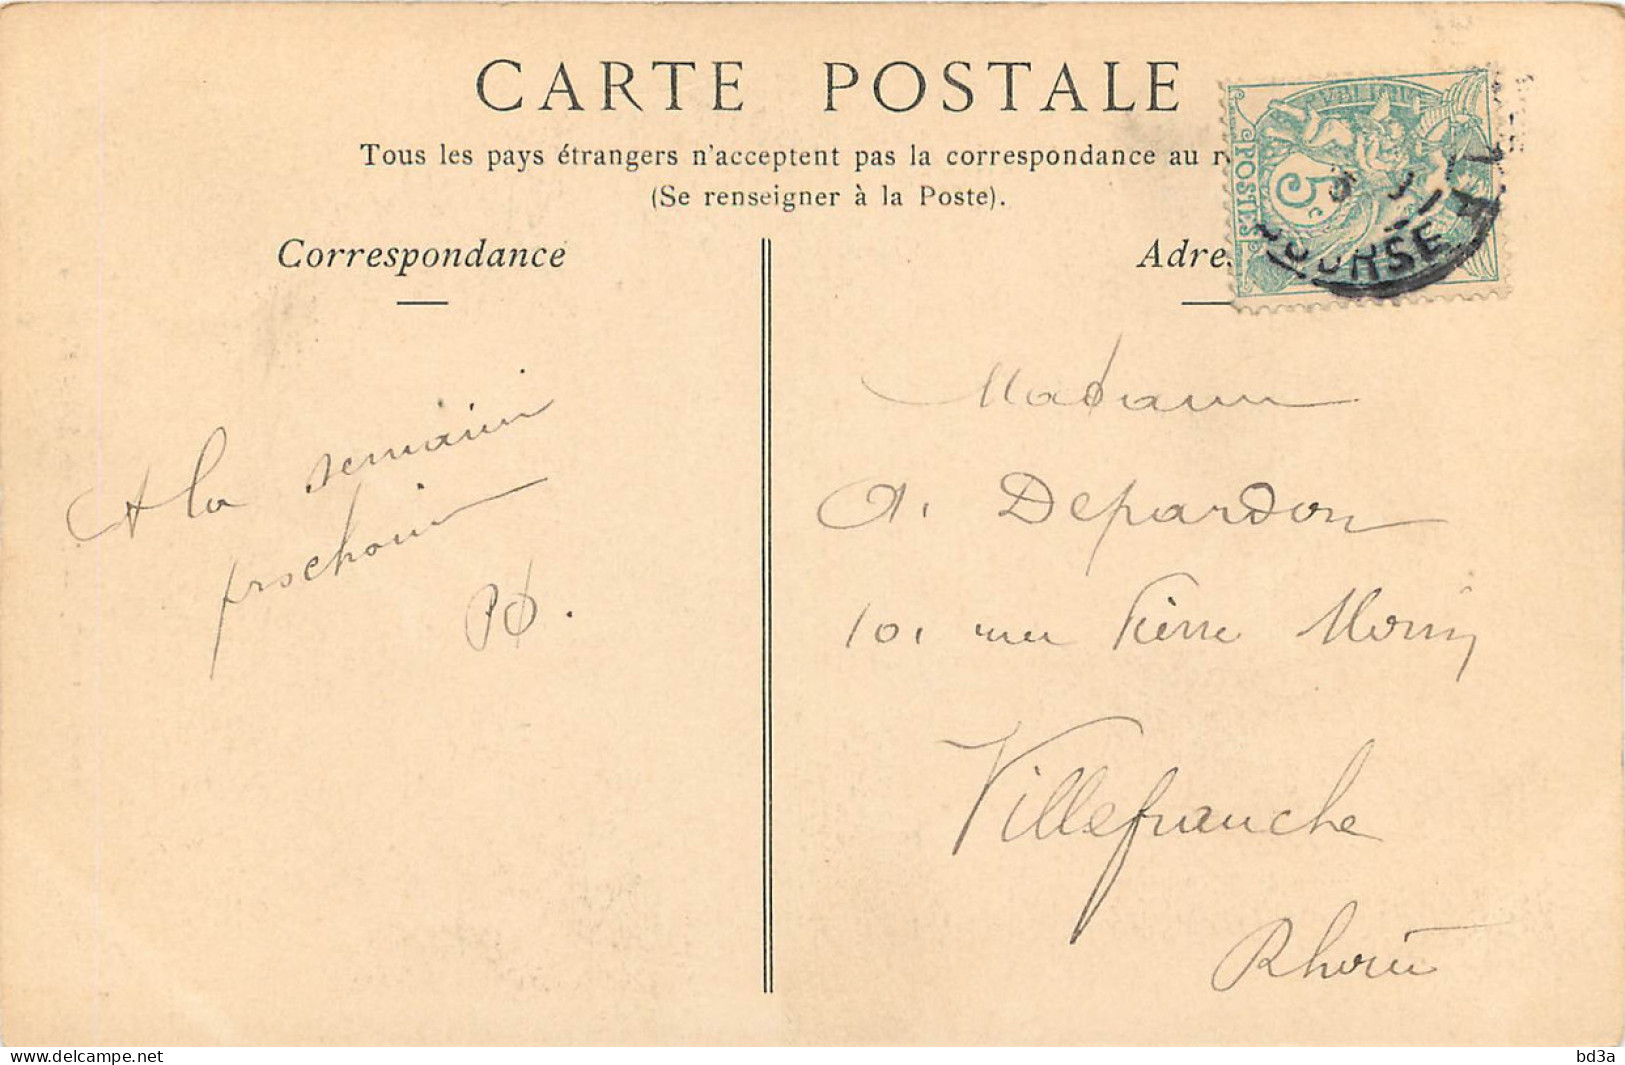 CARTE POSTALE
Tous les pays étrangers n'acceptent pas la correspondance au
(Se renseigner à la Poste).
Correspondance
Adre
PUBLIQUE
POSTES
5c
BOURSE
A la semaine
prochaine
PD.
Madame
A. Depardon
101 rue Pierre Morin
Villefranche
Rhône
website: delcampe.net
bd3a